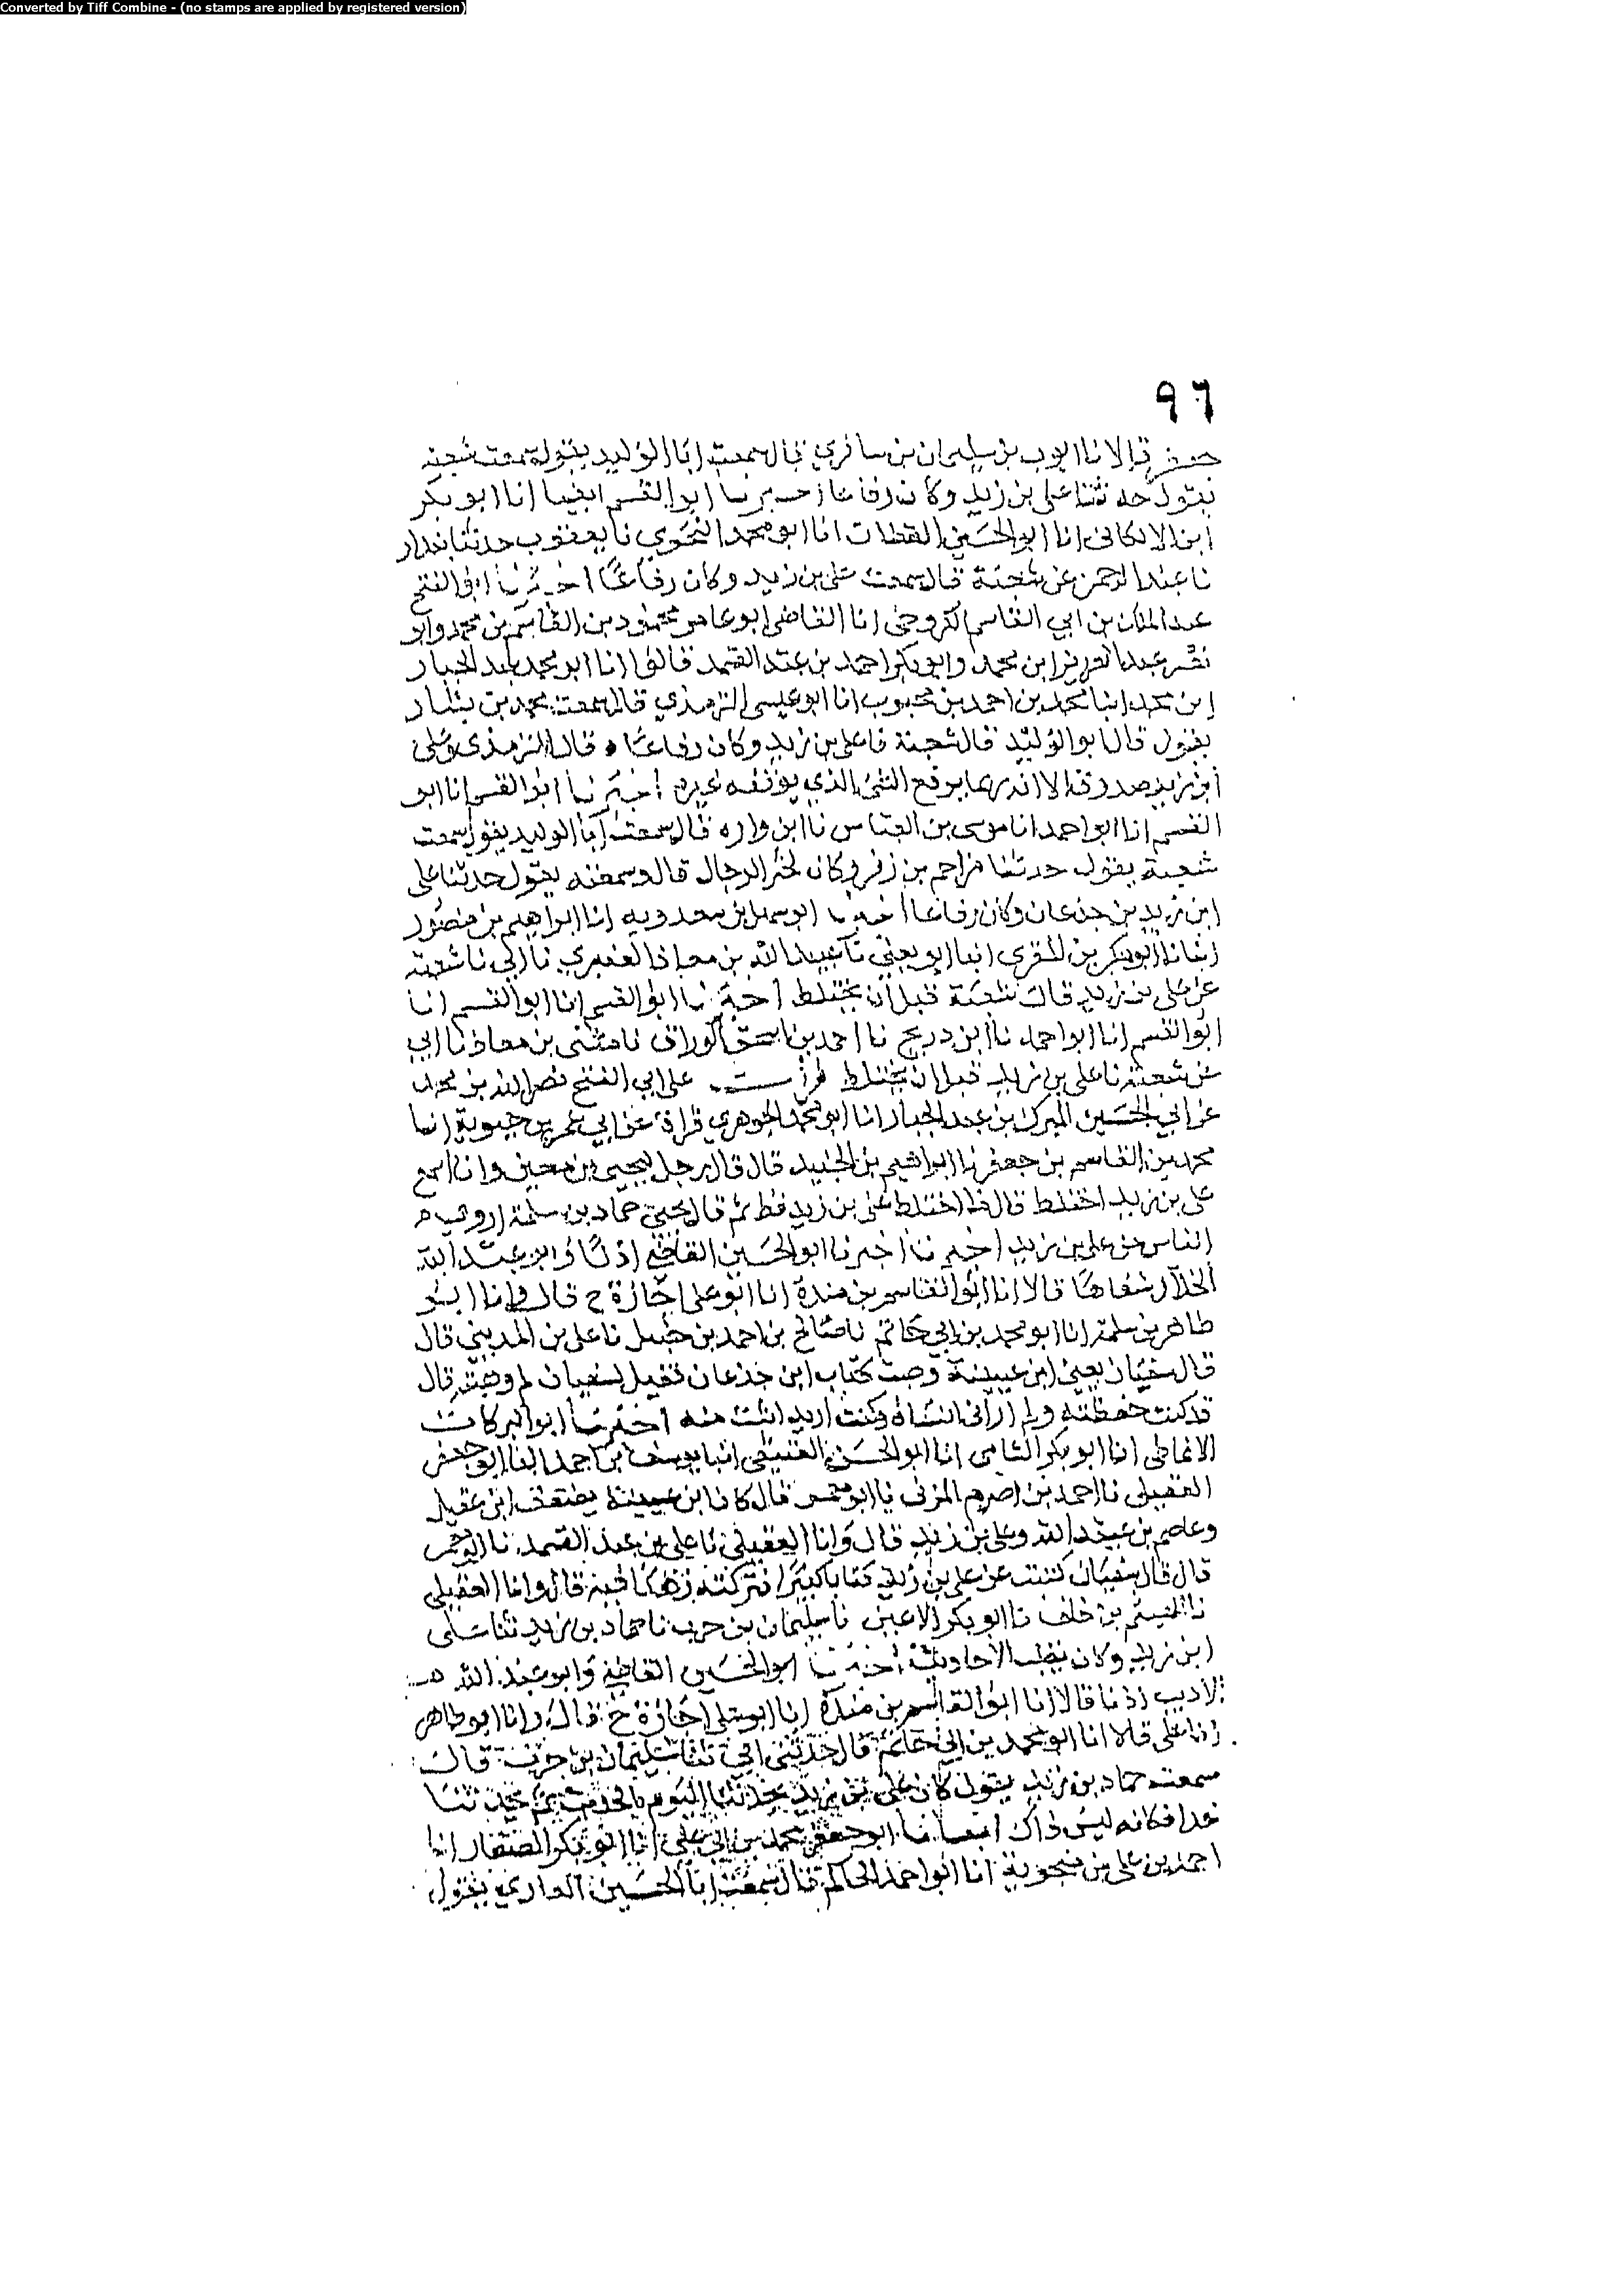 Converted by Tiff Combine - (no stamps are applied by registered version)
٩٦
قالا نا ايوب بن سليمان بن سافري قال سمعت ابا الوليد يقول سمعت شعبة
يقول حدثنا علي بن زيد وكان رفاعا اخبرنا ابو القسم ايضا انا ابو بكر
ابن الالكائى انا ابو الحسين القطان انا ابو محمد النحوي نا يعقوب حدثنا بندار
نا عبد الرحمن عن شعبة قال سمعت علي بن زيد وكان رفاعا اخبرنا ابو الفتح
عبد الملك بن ابي القاسم الكروخى انا القاضى ابو عامر محمود بن القاسم بن محمد وابو
نصر عبد العزيز بن محمد وابو بكر احمد بن عبد الصمد قالوا انا ابو محمد عبد الجبار
ابن محمد انبا محمد بن احمد بن محبوب انا ابو عيسى الترمذي قال سمعت محمد بن بشار
يقول قال ابو الوليد قال شعبة نا علي بن زيد وكان رفاعا ٥ قال الترمذى وعلى
ابن زيد صدوق الا انه ربما يرفع الشئ الذي يوقفه غيره اخبرنا ابو القسم انا ابو
القسم انا ابو احمد انا موسى بن العباس نا ابن واره قال سمعت ابا الوليد يقول سمعت
شعبة يقول حدثنا مزاحم بن زفر وكان لخير الرجال قال وسمعته يقول حدثنا على
ابن زيد بن جدعان وكان رفاعا اخبرنا ابو سهل بن سعدويه انا ابراهيم بن منصور
انبانا ابو بكر بن المقرى انبا ابو يعلى نا عبيد الله بن معاذ العنبري نا ابي نا شعبة
عن علي بن زيد قال شعبة قبل ان يختلط اخبرنا ابو القسم انا ابو القسم انا
ابو القسم انا ابو احمد نا ابن دريج نا احمد بن اسحق الوراق نا مثنى بن معاذ نا ابي
عن شعبة نا علي بن زيد قبل ان يختلط قرأت على ابي الفتح نصر الله بن محمد
عن ابي الحسين المبرك بن عبد الجبار انا ابو محمد الجوهري قراة عن ابي عمر بن حيوية انا
محمد بن القاسم بن جعفر نا ابراهيم بن الجنيد قال قال رجل ليحيى بن معين وانا اسمع
علي بن زيد اختلط قال ما اختلط علي بن زيد قط ثم قال يحيى حماد بن سلمة اروى
الناس عن علي بن زيد اخبرنا اخبرنا ابو الحسين القاضى اذنا وابو عبد الله
الخلال شفاها قالا انا ابو القاسم بن مندة انا ابو على اجازة ح قال وانا ابو
طاهر بن سلمة انا ابو محمد بن ابي حاتم نا صالح بن احمد بن حنبل نا على بن المديني قال
قال سفيان يعنى ابن عيينة وهبت كتاب ابن جدعان فقيل لسفيان لم وهبته قال
قد كنت حفظته ولم ارانى انساه وكنت اريد اثبت منه اخبرنا ابو البركات
الانماطى انا ابو بكر الشامى انا ابو الحسن العتيقى انبا يوسف بن احمد انبا ابو جعفر
العقيلى نا احمد بن اصرم المزنى نا ابو معمر قال كان ابن عيينة يضعف ابن عقيل
وعاصم بن عبيد الله وعلى بن زيد قال وانا العقيلى نا على بن عبد الصمد نا ابو معمر
قال قال سفيان كتبت عن علي بن زيد كتابا كبيرا فتركته زهدا فيه قال وانا العقيلى
نا الهيثم بن خلف نا ابو بكر الاعين نا سليمان بن حرب نا حماد بن زيد ثنا على
ابن زيد وكان يقلب الاحاديث اخبرنا ابو الحسين القاضى وابو عبد الله
الاديب اذنا قالا انا ابو القاسم بن مندة انا ابو على اجازة ح قال وانا ابو طاهر
انا على قالا انا ابو محمد بن ابي حاتم قال حدثنى ابي ثنا سليمان بن حرب قال
سمعت حماد بن زيد يقول كان على بن زيد يحدثنا اليوم بالحديث ثم يحدثنا
غدا فكانه ليس ذاك انبانا ابو جعفر محمد بن ابي على انا ابو بكر الصفار انا
احمد بن علي بن منجوية انا ابو احمد الحاكم قال سمعت ابا الحسين الغازي يقول